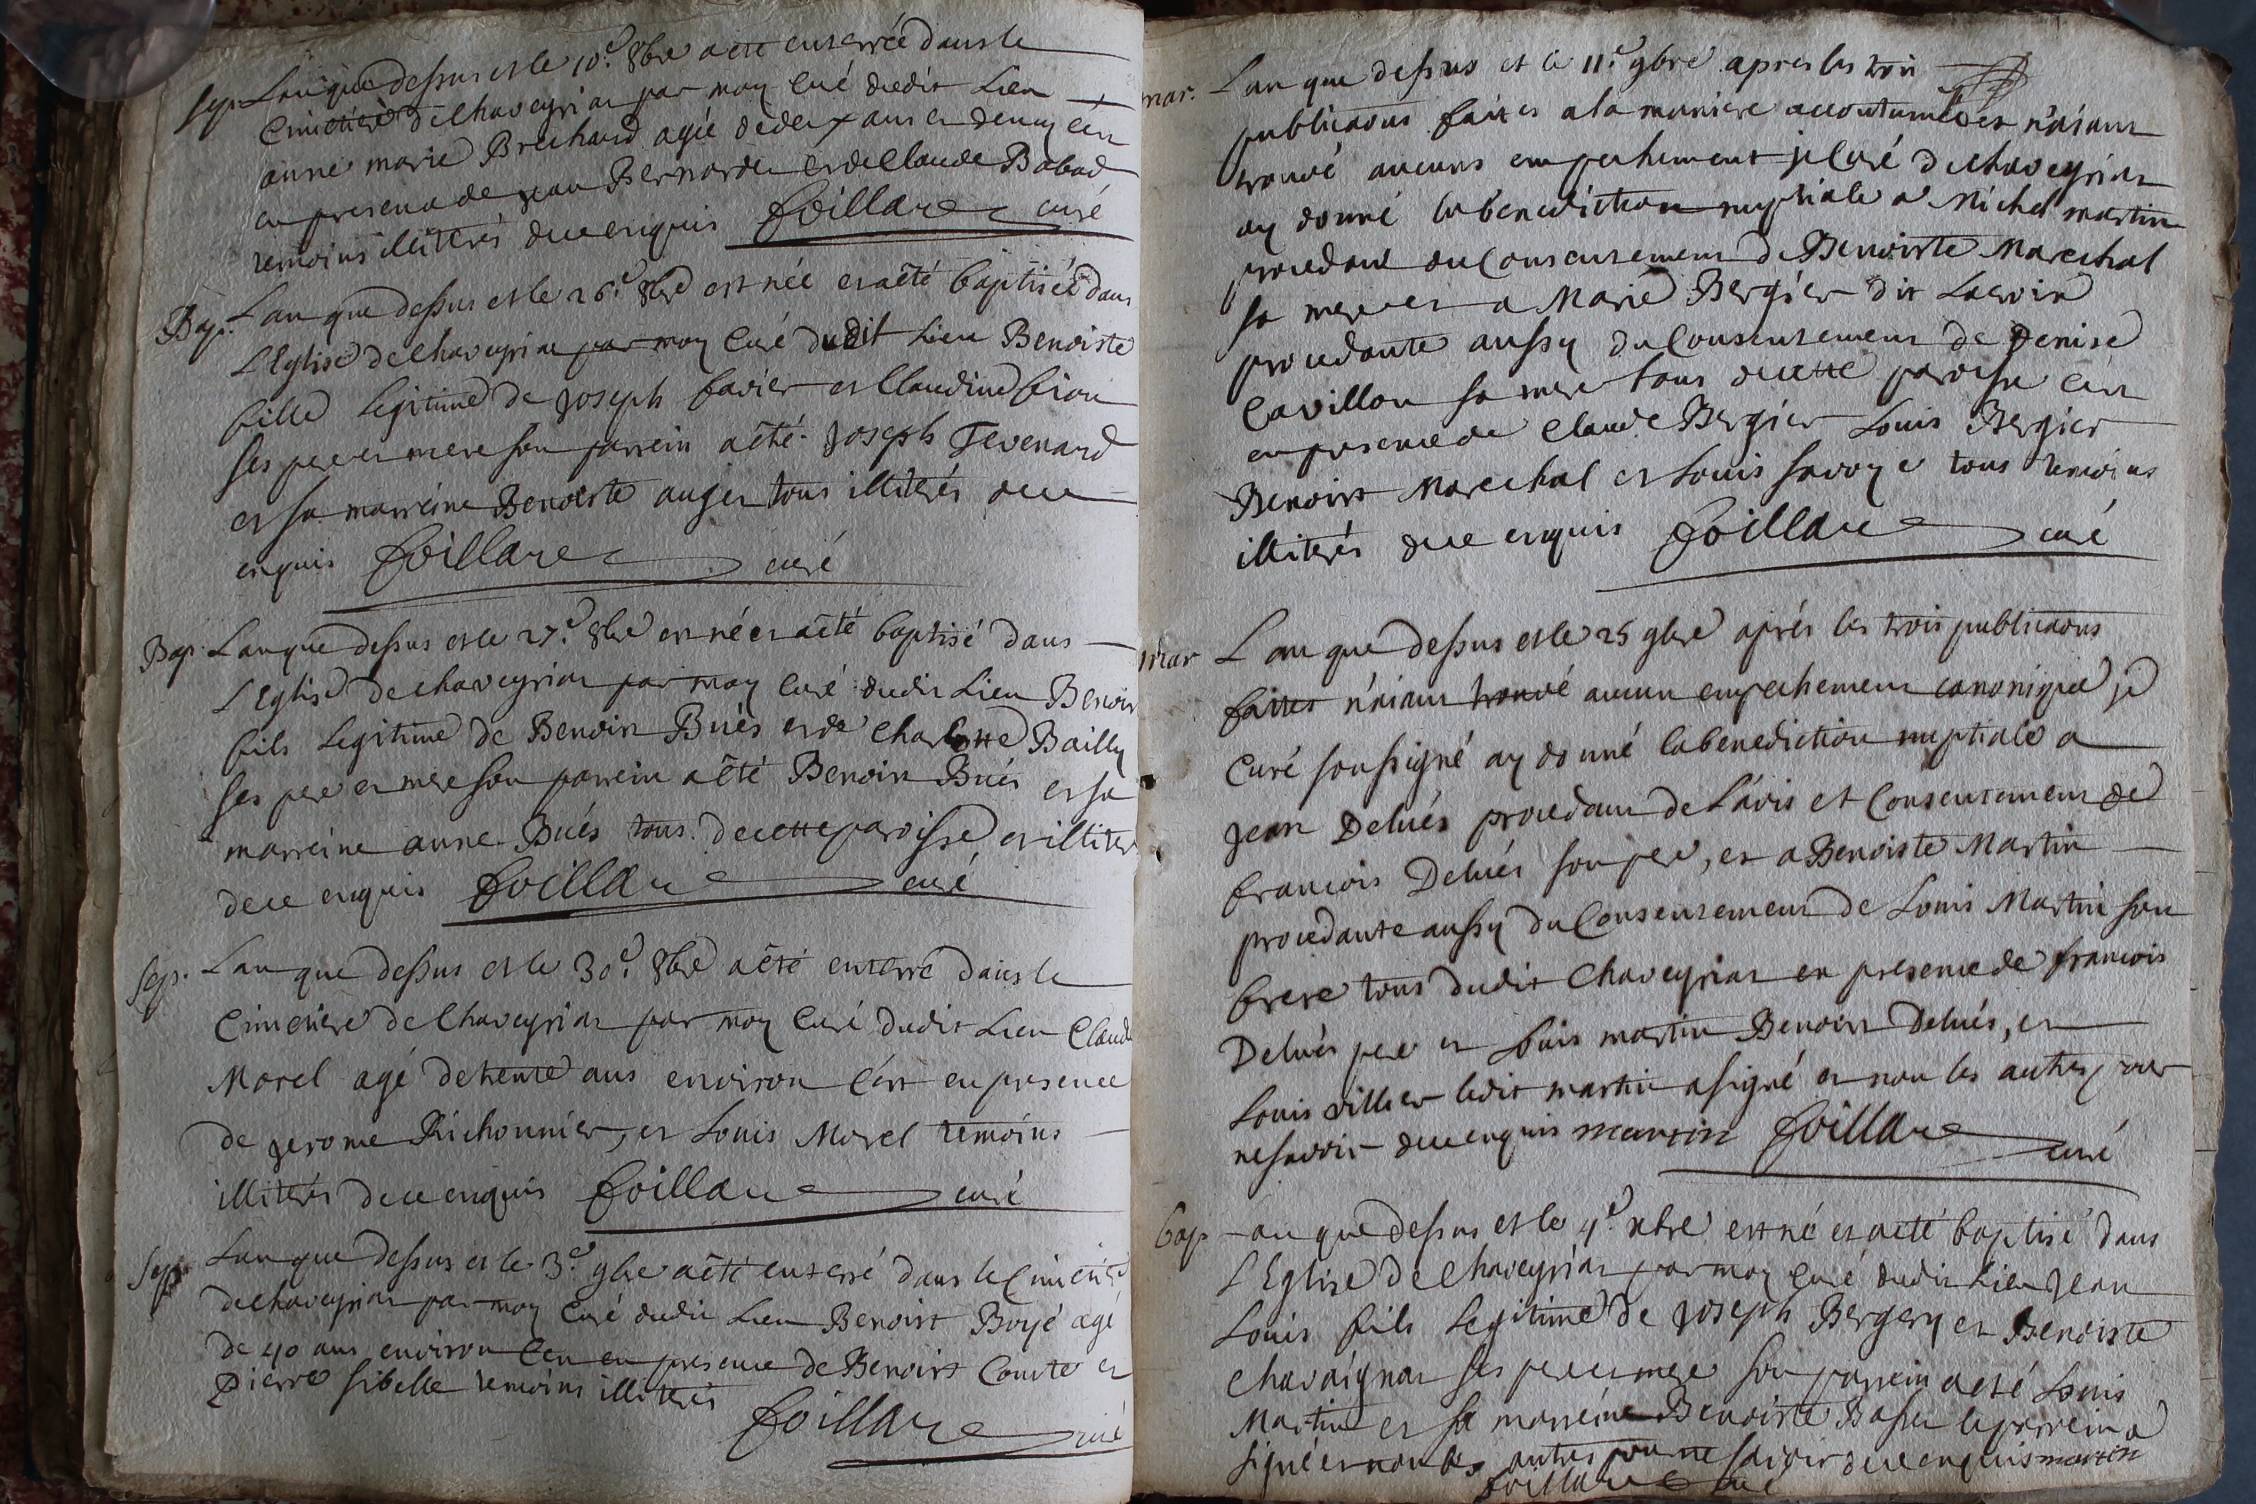 Sep. Lan que dessus et le 10.e 8bre a eté enterrée dans le
Cimetiere de Chaveyriat par moy Curé dudit Lieu
anne marie Brechard agée de deux ans et demy c'est
en presence de jean Bernarde et de Claude Babad
temoins illiterés de ce enquis foillare curé
Bap. Lan que dessus et le 26.e 8bre est née et a été baptisée dans
L'Eglise de Chaveyriat par moy Curé dudit Lieu Benoiste
fille Legitime de joseph favier et Claudine fion
ses pere et mere son parrein a été joseph Tevenard
et sa marreine Benoiste auger tous illiterés de ce
enquis foillare curé
Bap. Lan que dessus et le 27.e 8bre est né et a été baptisé dans
L'Eglise de Chaveyriat par moy Curé dudit Lieu Benoit
fils Legitime de Benoit Bués et de Charlotte Bailly
ses pere et mere son parrein a été Benoit Bués et sa
marreine anne Bués tous de cette paroisse et illiter
de ce enquis foillare curé
Sep. Lan que dessus et le 30.e 8bre a été enterré dans le
Cimetiere de Chaveyriat par moy Curé dudit Lieu Claude
Morel agé de trente ans environ c'est en presence
de jerome Richonnier, et Louis Morel temoins
illiterés de ce enquis foillare curé
Sep. Lan que dessus et le 3.e 9bre a été enterré dans le Cimetiere
de Chaveyriat par moy Curé dudit Lieu Benoist Boyé agé
de 40 ans environ c'est en presence de Benoist Comte et
Pierre sibelle temoins illiterés
foillare curé
mar. Lan que dessus et le 11.e 9bre apres les trois
publicaons faites a la maniere accoutumée et n'aiant
trouvé aucuns empechement je Curé de Chaveyriat
ay donné la benediction nuptiale a Michel martin
procedant du Consentement de Benoiste Marechal
sa mere et a Marie Bergier dit Lacroix
procedante aussy du Consentement de Denise
Cavillon sa mere tous de cette paroisse c'est
en presence de Claude Bergier Louis Bergier
Benoist Marechal et Louis savoye tous temoins
illiterés de ce enquis foillare curé
mar Lan que dessus et le 25 9bre aprés les trois publicaons
faittes n'aiant trouvé aucun empechement canonique je
Curé soussigné ay donné la benediction nuptiale a
jean Delués procedant de L'avis et Consentement de
francois Delués son pere, et a Benoiste Martin
procedante aussy du Consentement de Louis Martin son
frere tous dudit Chaveyriat en presence de francois
Delués pere et Louis martin Benoist Delués, et
Louis villier ledit martin a signé et non les autres pour
ne savoir de ce enquis martin foillare curé
bap - an que dessus et le 4.e xbre est né et a eté baptisé dans
L'Eglise de Chaveyriat par moy Curé dudit Lieu Jean
Louis fils Legitime de joseph Bergery et Benoiste
Chavaignat ses pere et mere son parrein a eté Louis
Martin et sa marreine Benoiste Basset le parrein a
signé et non les autres pour ne savoir de ce enquis martin
foillare curé